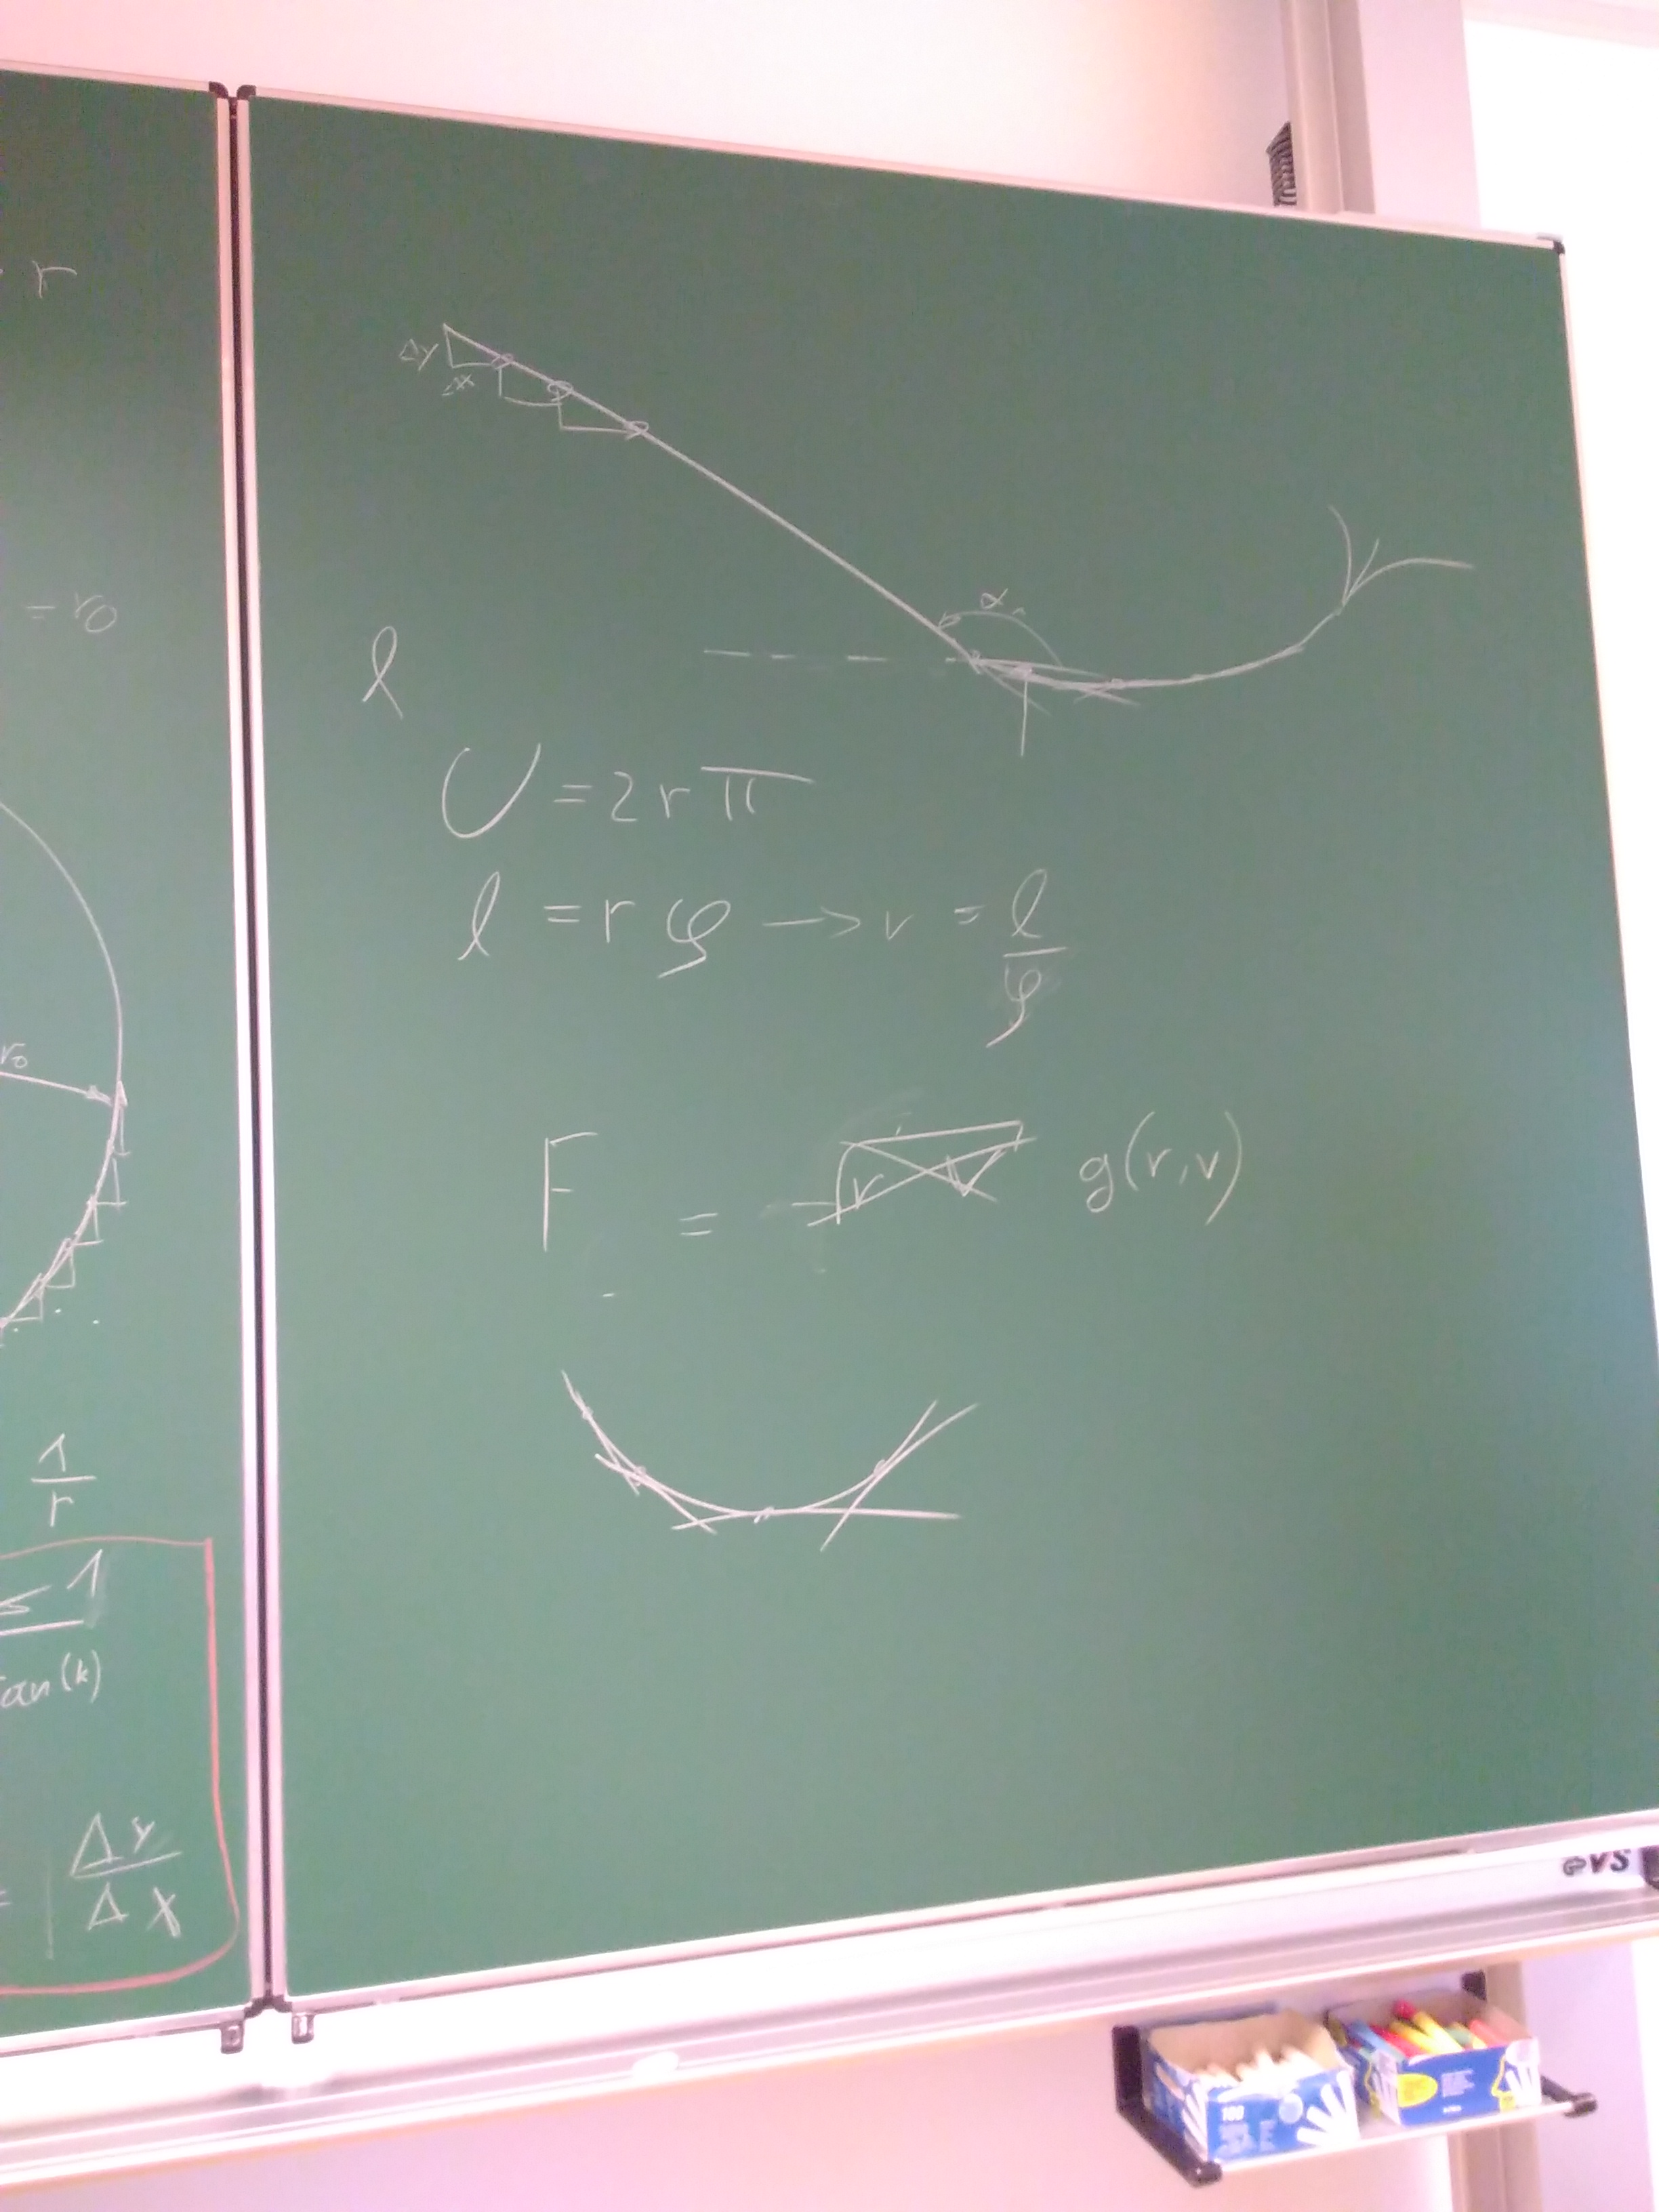 r
= r₀
r₀
1
r
≤ 1
tan(k)
= | Δy
Δx
Δy
Δx
α
l
U = 2rπ
l = rφ → r = l
φ
F = g(r,v)
VS
100